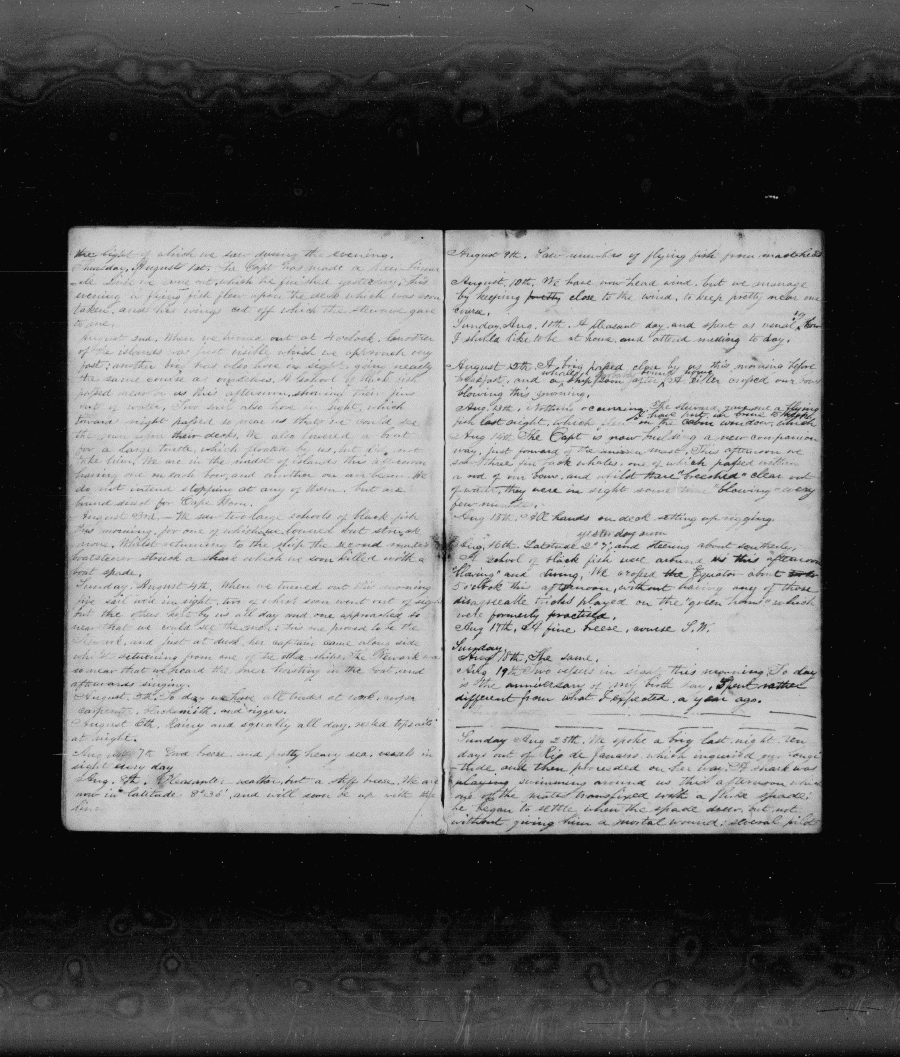 the light of which we saw during the evening.
Thursday, August 1st. The Capt has made a new
which he finished yesterday; this
evening a flying fish flew upon the deck which was soon
taken, and his wings cut off which the steward gave
to me.
August 2nd. When we turned out at 4 o'clock, another
of the islands was just visible which we approach very
fast; another brig was also here in sight, going nearly
the same course as ourselves. A school of black fish
passed near us this afternoon, showing their fins
out of water. Two sail also here in sight, which
towards night passed so near us that we could see
the men upon their decks. We also lowered a boat
for a large turtle, which floated by us, but did not
take him. We are in the midst of islands this afternoon
having one on each bow, and another on our beam. We
do not intend stopping at any of them, but are
bound direct for Cape Horn.
August 3rd. We saw two large schools of black fish
this morning, for one of which we lowered but struck
none. Whilst returning to the ship the second mate's
boatsteerer struck a shark which we soon killed with a
boat spade.
Sunday, August 4th. When we turned out this morning
five sail were in sight, two of which soon went out of sight
but the other kept by us all day and one approached so
near that we could see the men; this one proved to be the
Newark, and just at dusk her captain came along side
whilst returning from one of the other ships. The Newark was
so near that we heard the men hoisting in the boat, and
afterwards singing.
August 5th. To day we have all trades at work, cooper
carpenter, blacksmith, and riggers.
August 6th. Rainy and squally all day, reefed topsails
at night.
August 7th. Good breeze and pretty heavy sea, vessels in
sight every day
Aug. 8th. Pleasant weather, but a stiff breeze. We are
now in latitude 8°35', and will soon be up with the
line.
August 9th. Saw numbers of flying fish from masthead
August, 10th. We have now head wind, but we manage
by keeping pretty close to the wind, to keep pretty near our
course.
Sunday, Aug. 11th. A pleasant day, and spent as usual, how
I should like to be at home, and attend meeting to day.
August 12th. A brig passed close by us this morning before
breakfast, and a ship soon after. A killer crossed our bows
whaler bound home
blowing this morning.
Aug. 13th. Nothing occurring. The steward gave me a flying
I have put in brine & kept
fish last night, which flew in the cabin window, which
Aug 14th. The Capt is now building a new companion
way, just forward of the mizzen mast. This afternoon we
saw three fin back whales, one of which passed within
a rod of our bow, and whilst there "breeched" clear out
of water, they were in sight some time "blowing" every
few minutes.
Aug 15th. All hands on deck setting up rigging.
yesterday noon
Aug, 16th. Latitude 2°7', and steering about southerly,
A school of black fish were around us this afternoon
"blowing" and diving, We crossed the Equator about
5 o'clock this afternoon, without having any of those
disagreeable tricks played on the "green hans" which
were formerly practised.
Aug 17th. A fine breese, course S.W.
Sunday,
Aug 18th, The same.
Aug 19th Two vessels in sight this morning. To day
is the anniversary of my birth day, Spent rather
different from what I expected, a year ago.
Sunday Aug 25th. We spoke a brig last night, ten
days out of Rio de Janeiro, which inquired our longi-
tude and then proceeded on her way. A shark was
playing swimming around us this afternoon when
one of the mates transfixed with a fluke spade;
he began to settle when the spade drew, but not
without giving him a mortal wound; several pilot